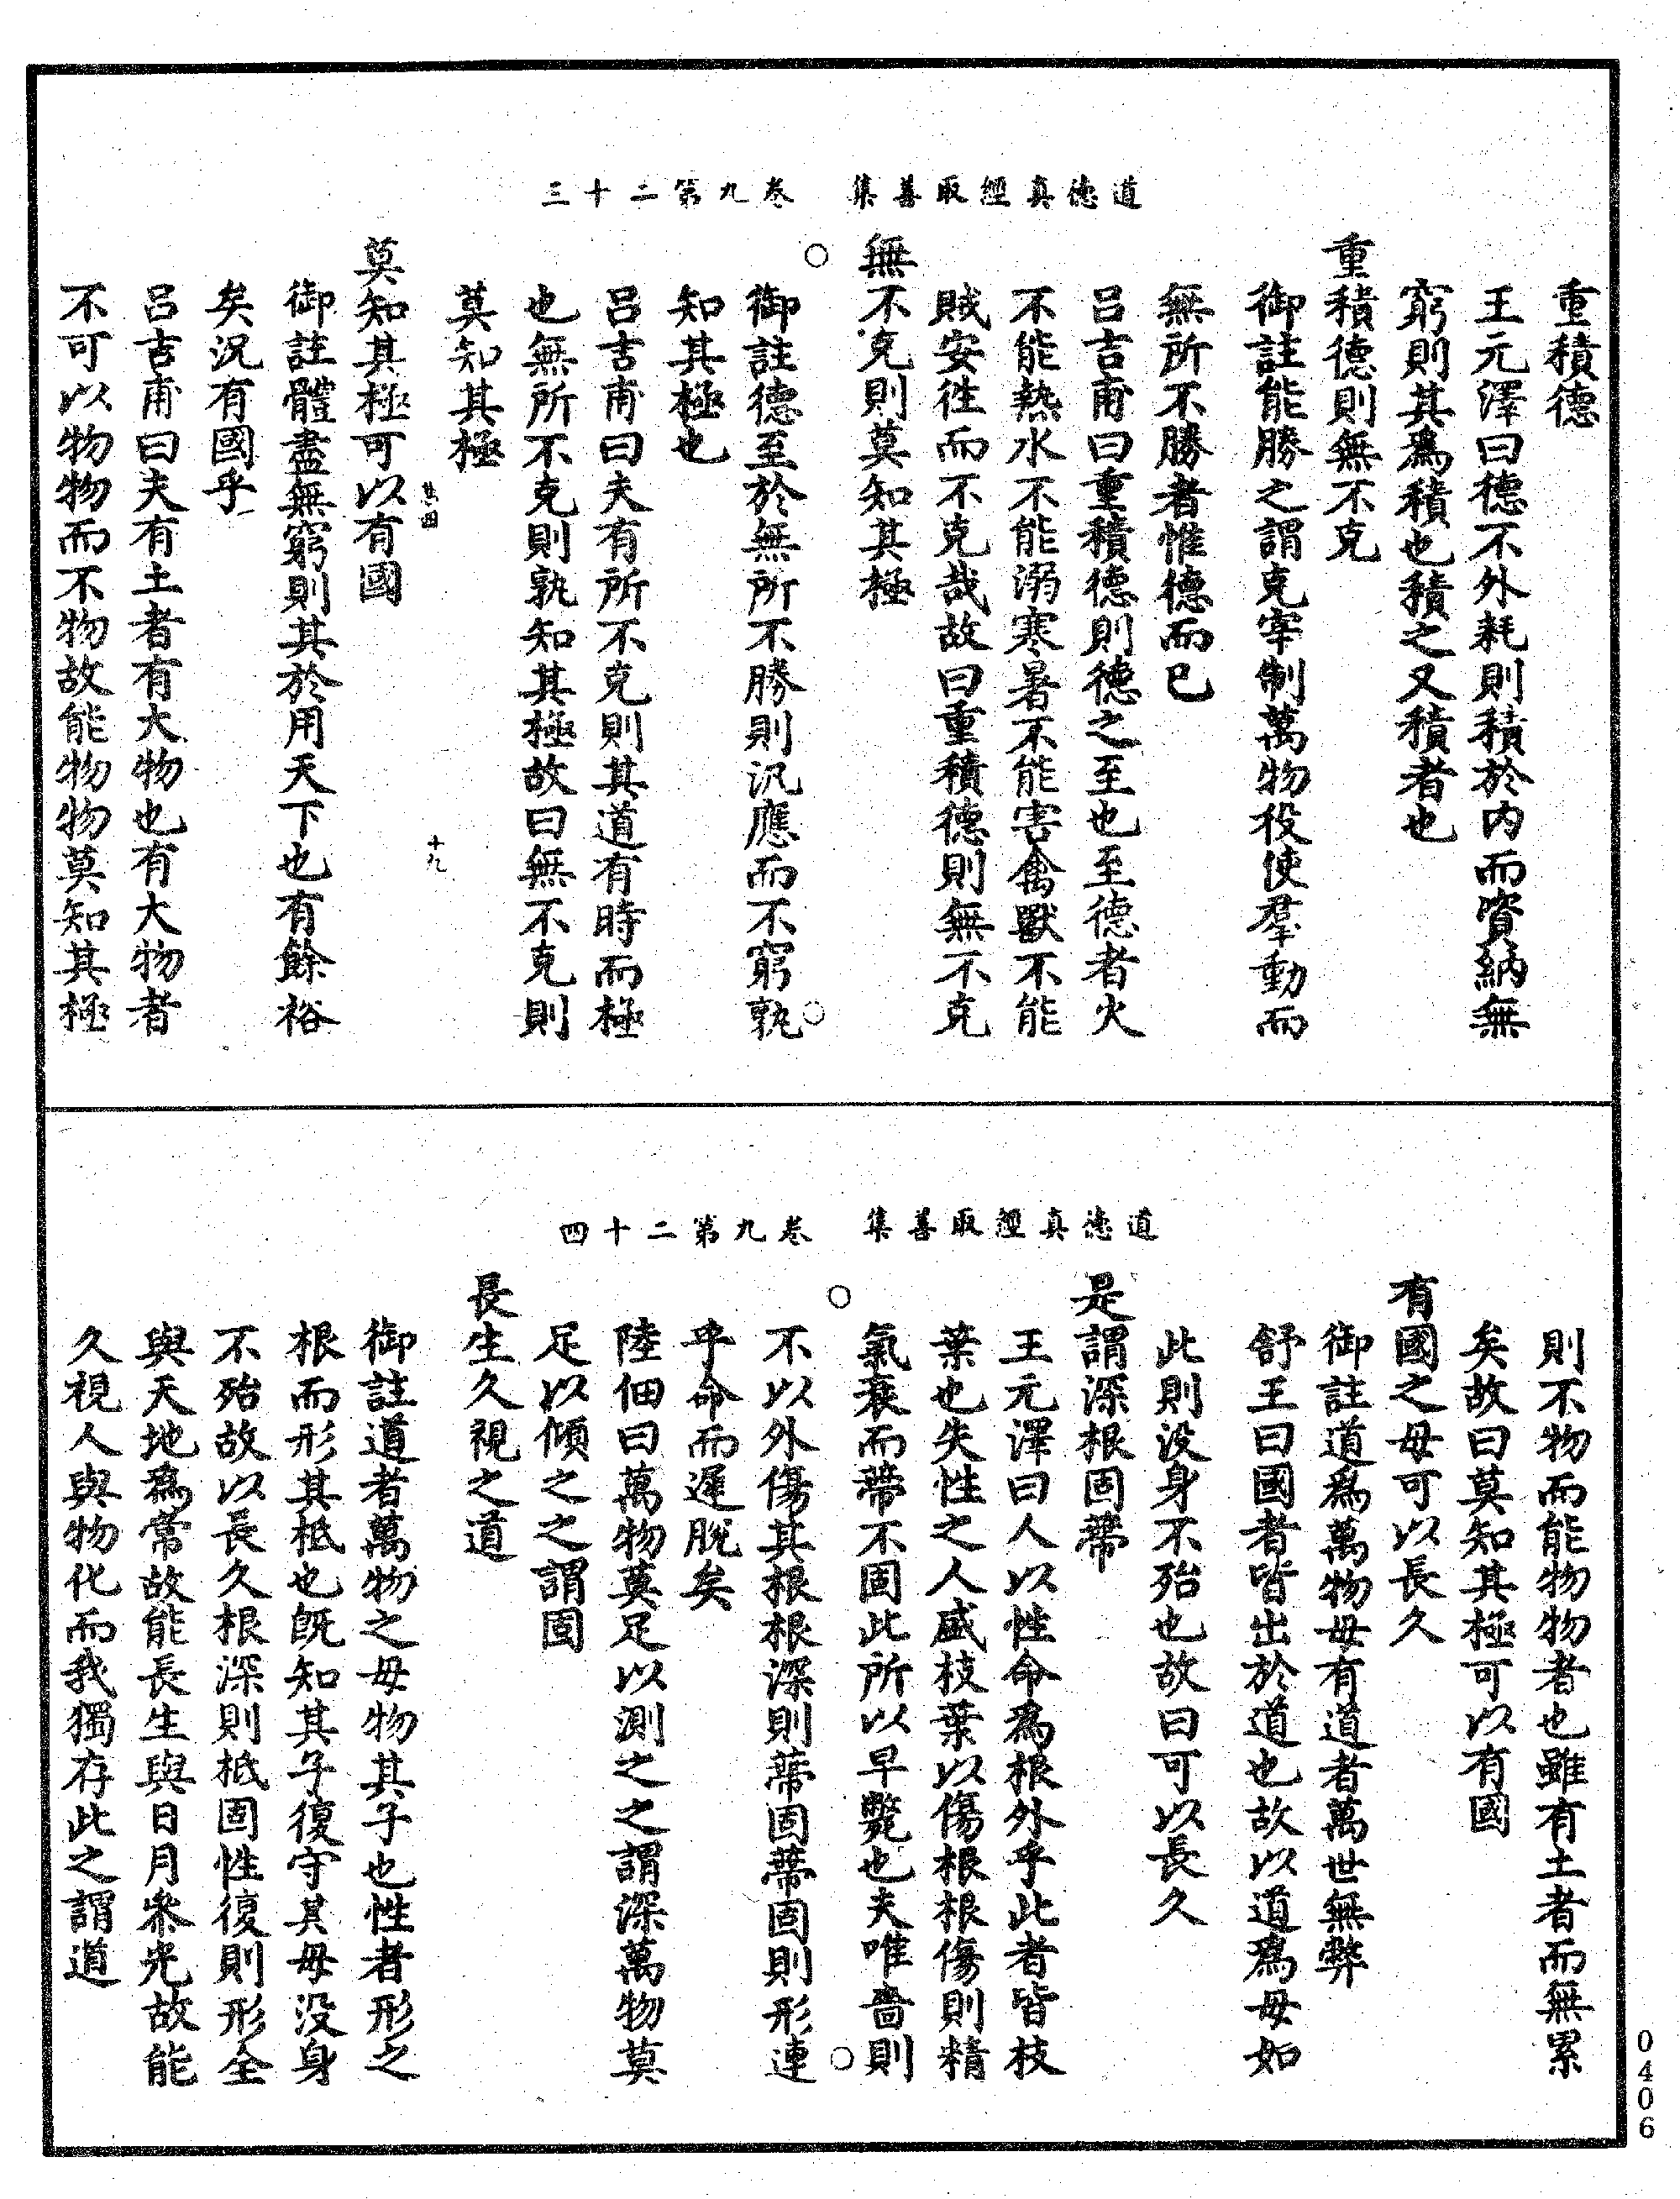 道德真經取善集　卷九第二十三
重積德
王元澤曰德不外耗則積於内而資納無
窮則其爲積也積之又積者也
重積德則無不克
御註能勝之謂克宰制萬物役使羣動而
無所不勝者惟德而已
呂吉甫曰重積德則德之至也至德者火
不能熱水不能溺寒暑不能害禽獸不能
賊安往而不克哉故曰重積德則無不克
無不克則莫知其極
御註德至於無所不勝則汎應而不窮孰
知其極也
呂吉甫曰夫有所不克則其道有時而極
也無所不克則孰知其極故曰無不克則
莫知其極
十九
莫知其極可以有國
御註體盡無窮則其於用天下也有餘裕
矣況有國乎
呂吉甫曰夫有土者有大物也有大物者
不可以物物而不物故能物物莫知其極
道德真經取善集　卷九第二十四
則不物而能物物者也雖有土者而無累
矣故曰莫知其極可以有國
有國之母可以長久
御註道爲萬物母有道者萬世無弊
舒王曰國者皆出於道也故以道爲母如
此則没身不殆也故曰可以長久
是謂深根固蔕
王元澤曰人以性命爲根外乎此者皆枝
葉也失性之人盛枝葉以傷根根傷則精
氣衰而蔕不固此所以早斃也夫唯嗇則
不以外傷其根根深則蔕固蔕固則形連
乎命而遲脫矣
陸佃曰萬物莫足以測之之謂深萬物莫
足以傾之之謂固
長生久視之道
御註道者萬物之母物其子也性者形之
根而形其柢也既知其子復守其母没身
不殆故以長久根深則柢固性復則形全
與天地爲常故能長生與日月參光故能
久視人與物化而我獨存此之謂道
0406